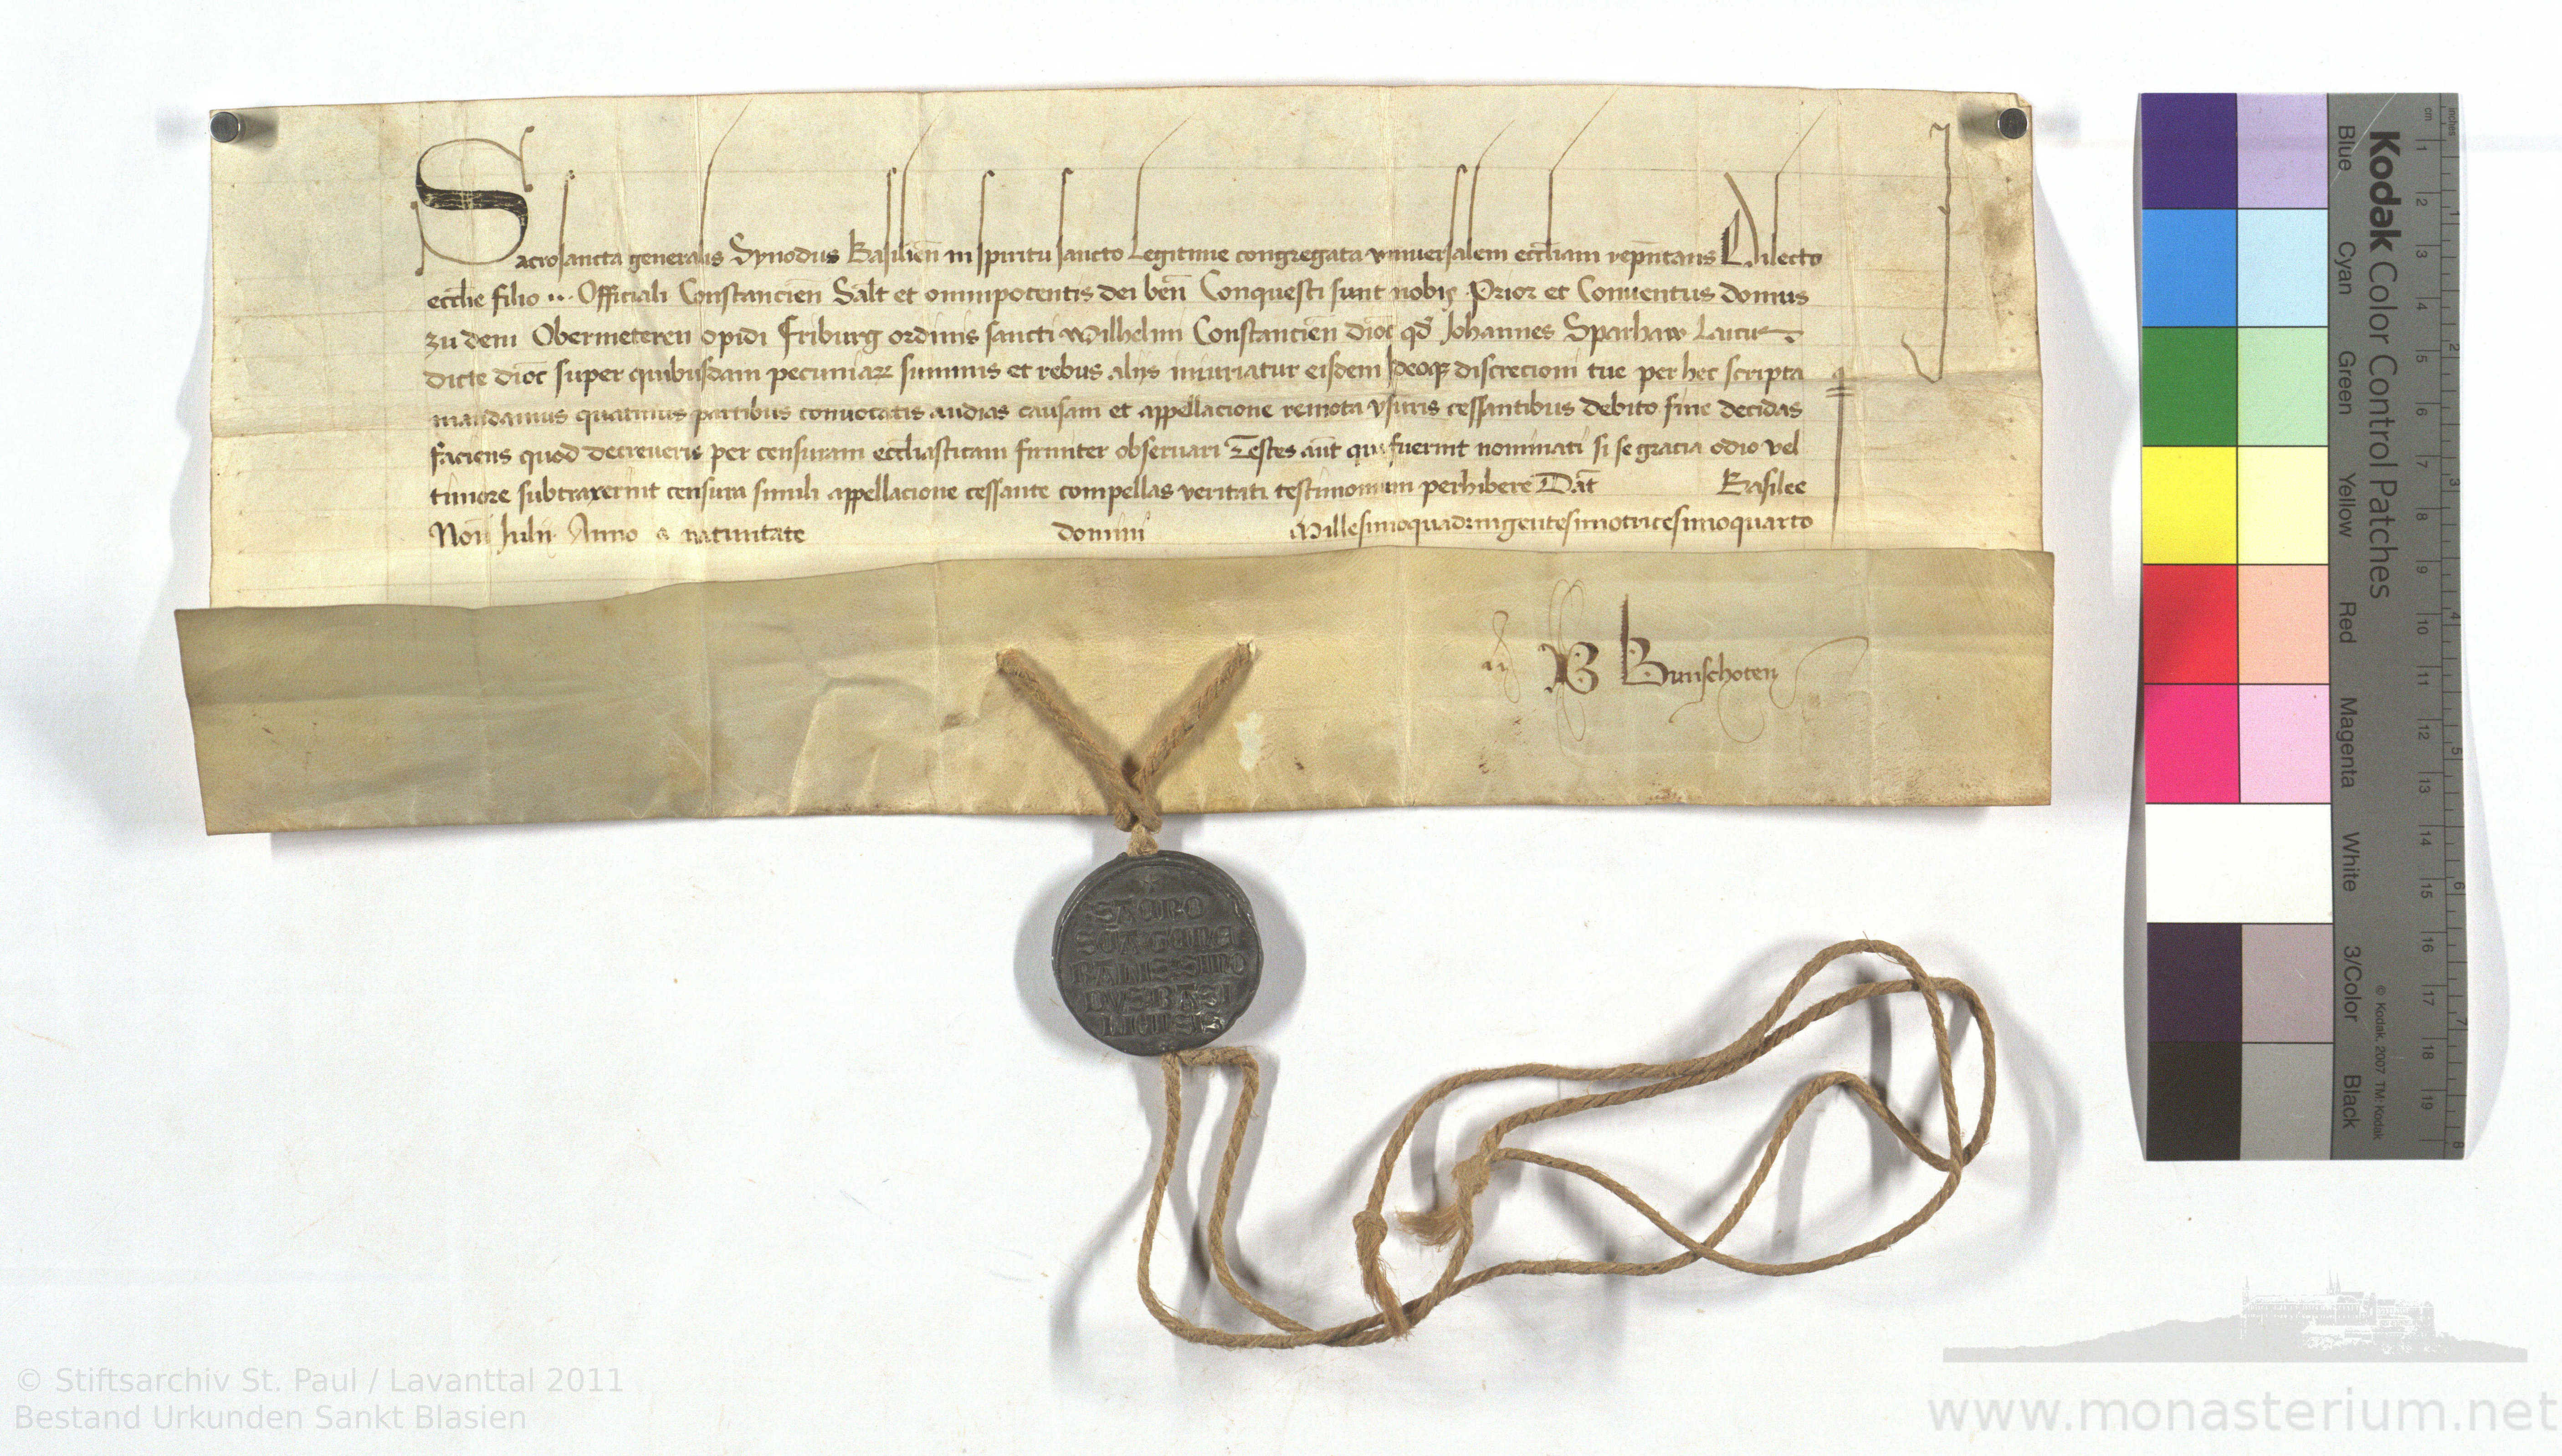 Sacrosancta generalis Synodus Basilien̄ in spiritu sancto legitime congregata vniuersalem eccl̄iam rep̄ntans Dilecto
eccl̄ie filio ... Officiali Constancien̄ Sal̄t et omnipotentis dei ben̄ Conquesti sunt nobis Prior et Conuentus domus
zu dem Obermeteren opidi Friburg ordinis sancti Wilhelmi Constancien̄ dioc̄ qd̄ Johannes Sparhaw Laicus
dicte dioc̄ super quibusdam pecuniaꝝ summis et rebus alijs iniuriatur eisdem Ideoqꝫ discrecioni tue per hec scripta
mandamus quatinus partibus conuocatis audias causam et appellacione remota vsuris cessantibus debito fine decidas
faciens quod decreueris per censuram eccl̄iasticam firmiter obseruari Testes aūt qui fuerint nominati si se gracia odio vel
timore subtraxerint censura simili appellacione cessante compellas veritati testimonium perhibere Dat̄ Basilee
Non̄ Julij Anno a natiuitate domini Millesimoquadringentesimotricesimoquarto
B Bunschoten
SACRO
SCA·GENE
RALIS·SINO
DVS·BASI
LIENSIS
Kodak Color Control Patches
Blue Cyan Green Yellow Red Magenta White 3/Color Black
© Kodak, 2007 TM: Kodak
cm 1 2 3 4 5 6 7 8 9 10 11 12 13 14 15 16 17 18 19
inches 1 2 3 4 5 6 7 8
© Stiftsarchiv St. Paul / Lavanttal 2011
Bestand Urkunden Sankt Blasien
www.monasterium.net